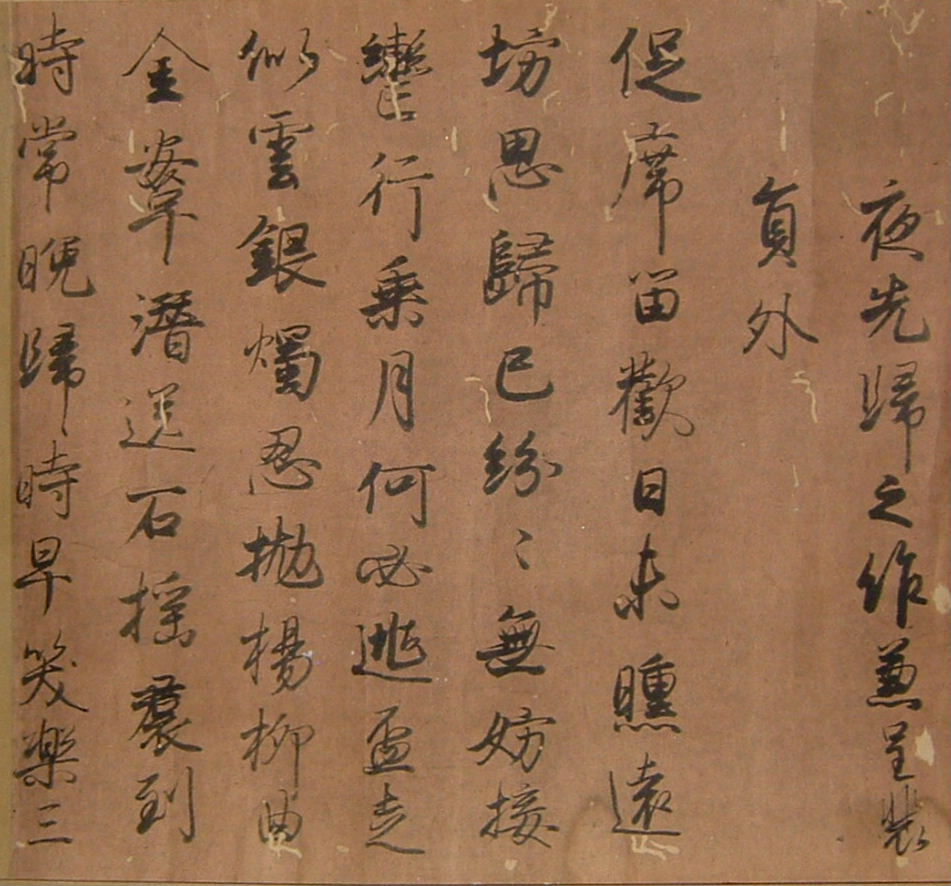 夜先歸之作兼呈裴
員外
促席留歡日未曛遠
坊思歸已紛〻無妨按
轡行乗月何必逃盃走
似雲銀燭忍抛楊柳曲
金鞍潛送石榴裠到
時常晩歸時早笑楽三